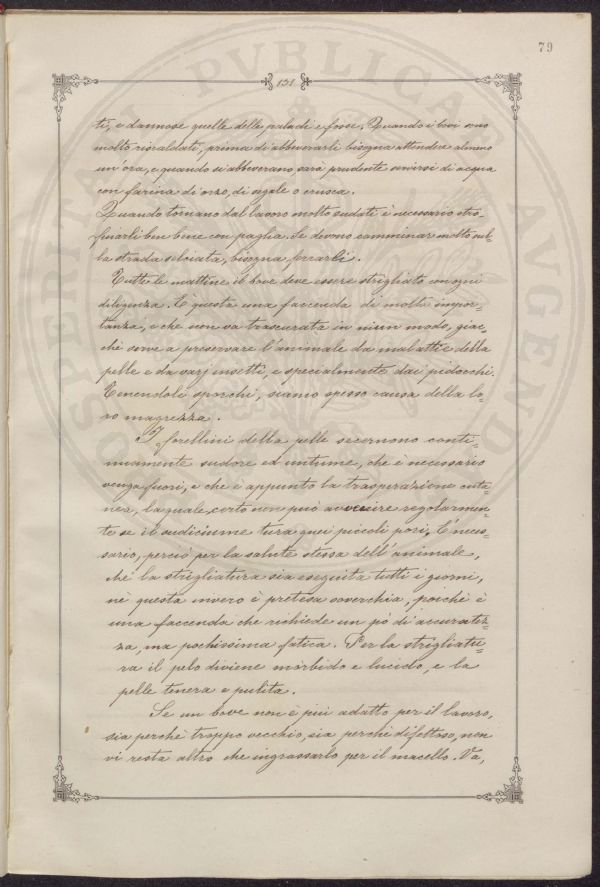 79
151
ti, e dannose quelle delle paludi e fosse. Quando i bovi sono
molto riscaldati, prima di abbeverarli bisogna attendere almeno
un'ora, e quando si abbeverano, sarà prudente servirsi di acqua
con farina di orzo, di segale o crusca.
Quando tornano dal lavoro molto sudati è necessario stro=
finarli ben bene con paglia. Se devono camminar molto sul=
la strada selciata, bisogna ferrarli.
Tutte le mattine il bove deve essere strigliato con ogni
diligenza. È questa una faccenda di molta impor=
tanza, e che non va trascurata in nisun modo, giac=
chè serve a preservare l'animale da malattie della
pelle e da varj insetti, e specialmente dai pidocchi.
Tenendoli sporchi, siamo spesso causa della lo=
ro magrezza.
I forellini della pelle secernono conti=
nuamente sudore ed untume, che è necessario
venga fuori, e che è appunto la traspirazione cuta=
nea, la quale, certo non può avvenire regolarmen=
te se il sudiciume tura quei piccoli pori. È neces=
sario, perciò per la salute stessa dell'animale,
che la strigliatura sia eseguita tutti i giorni,
nè questa invero è pretesa soverchia, poichè è
una faccenda che richiede un pò di accuratez=
za, ma pochissima fatica. Per la strigliatu=
ra il pelo diviene morbido e lucido, e la
pelle tenera e pulita.
Se un bove non è più adatto per il lavoro,
sia perchè troppo vecchio, sia perchè difettoso, non
vi resta altro che ingrassarlo per il macello. Va,
PUBLICAE
AUGEND
PROSPERITATI